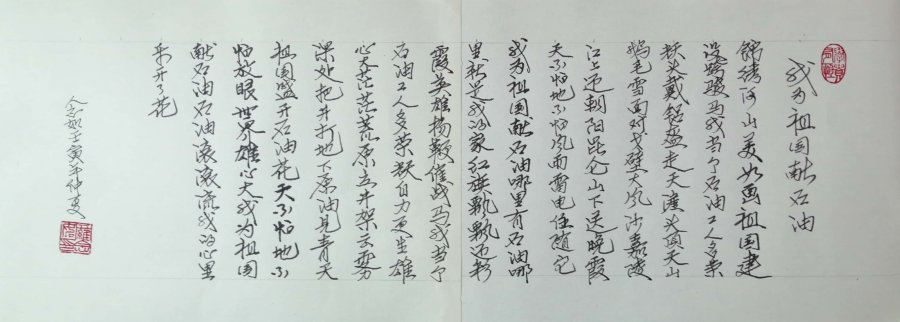 我为祖国献石油
锦绣河山美如画祖国建
设跨骏马我当个石油工人多荣
耀头戴铝盔走天涯头顶天山
鹅毛雪面对戈壁大风沙嘉陵
江上迎朝阳昆仑山下送晚霞
天不怕地不怕风雨雷电任随它
我为祖国献石油哪里有石油哪
里就是我的家红旗飘飘迎彩
霞英雄扬鞭催战马我当个
石油工人多荣耀自力更生雄
心大茫茫荒原立井架云雾
深处把井打地下原油见青天
祖国盛开石油花天不怕地不
怕放眼世界雄心大我为祖国
献石油石油滚滚流我的心里
乐开了花
壬寅年仲夏